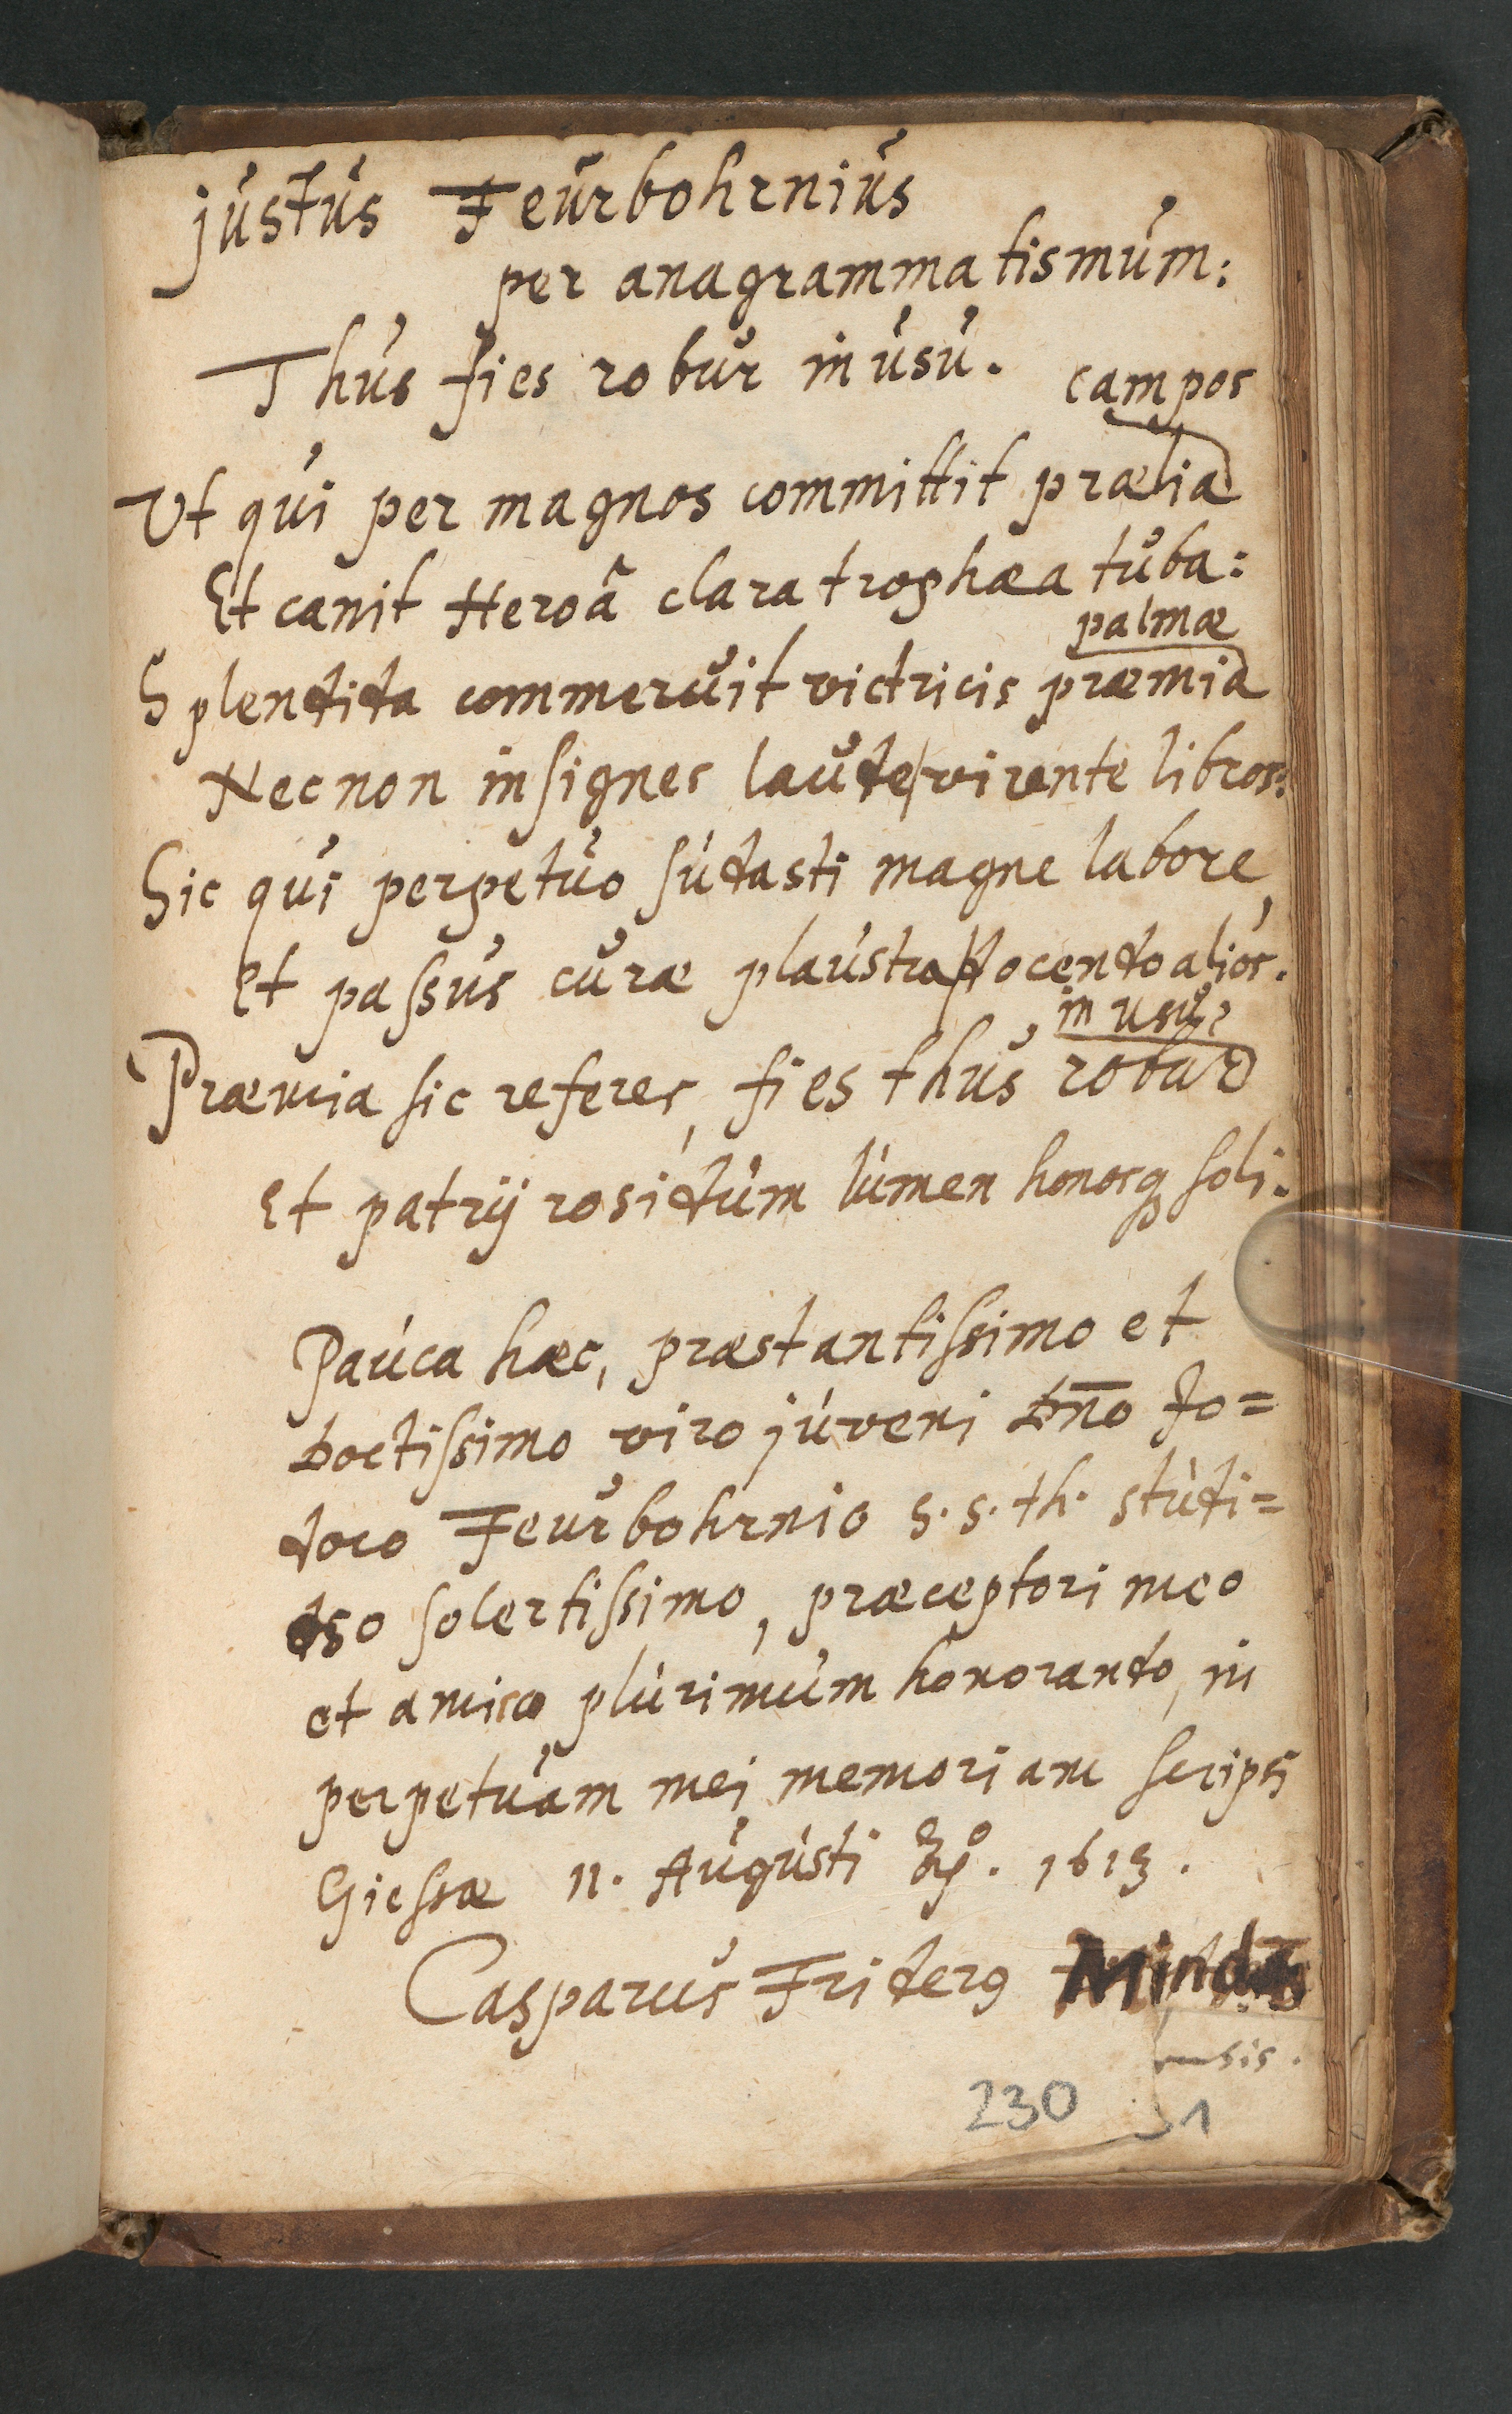 justus Feurbohrnius
per anagrammatismum:
Thus fies robur in usu.
campos
Ut qui per magnos committit prælia
Et canit Heroâ clara trophæa tuba:
palmæ
Splendida commeruit victricis præmia
Nec non insignes laude virente libros:
Sic qui perpetuo sudasti magne labore,
Et passus curæ plaustra docendo alios.
in usu,
Præmia sic referes, fies thus robur
Et patrij rosidum lumen honosq soli.
Pauca hæc, præstantissimo et
Doctissimo viro juveni Dn̄o Jo=
doco Feurbohrnio S. S. th. studi=
oso solertissimo, præceptori meo
et amico plurimum honorando, in
perpetuam mei memoriam scripsi
Giessæ 11. Augusti 1613.
Casparus Friderg Minda
ensis.
230 1